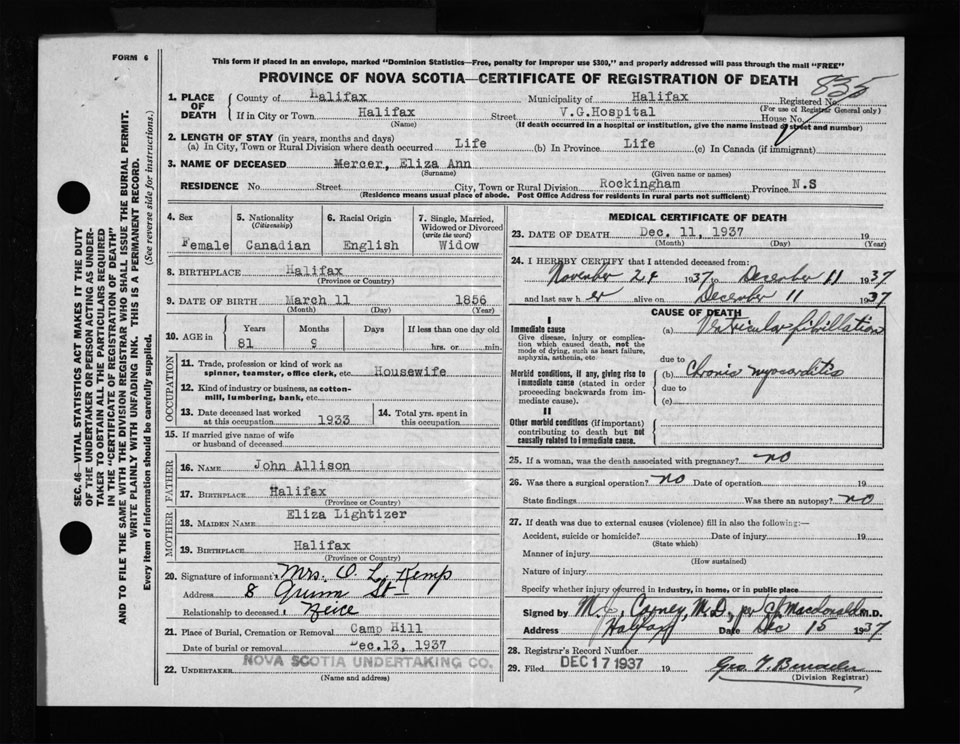 FORM 6
This form if placed in an envelope, marked "Dominion Statistics—Free, penalty for improper use $300," and properly addressed will pass through the mail "FREE"
PROVINCE OF NOVA SCOTIA—CERTIFICATE OF REGISTRATION OF DEATH
835
SEC. 46—VITAL STATISTICS ACT MAKES IT THE DUTY
OF THE UNDERTAKER OR PERSON ACTING AS UNDER-
TAKER TO OBTAIN ALL THE PARTICULARS REQUIRED
IN THE "CERTIFICATE OF REGISTRATION OF DEATH"
AND TO FILE THE SAME WITH THE DIVISION REGISTRAR WHO SHALL ISSUE THE BURIAL PERMIT.
WRITE PLAINLY WITH UNFADING INK. THIS IS A PERMANENT RECORD.
Every item of information should be carefully supplied. (See reverse side for instructions.)
1. PLACE OF DEATH
County of Halifax Municipality of Halifax Registered No.
(For use of Registrar General only)
If in City or Town Halifax Street V.G.Hospital House No.
(Name) (If death occurred in a hospital or institution, give the name instead of street and number)
2. LENGTH OF STAY (in years, months and days)
(a) In City, Town or Rural Division where death occurred Life (b) In Province Life (c) In Canada (if immigrant)
3. NAME OF DECEASED Mercer, Eliza Ann
(Surname) (Given name or names)
RESIDENCE No. Street City, Town or Rural Division Rockingham Province N.S
(Residence means usual place of abode. Post Office Address for residents in rural parts not sufficient)
4. Sex
Female
5. Nationality
(Citizenship)
Canadian
6. Racial Origin
English
7. Single, Married,
Widowed or Divorced
(write the word)
Widow
8. BIRTHPLACE Halifax
(Province or Country)
9. DATE OF BIRTH March 11 1856
(Month) (Day) (Year)
10. AGE in
Years Months Days If less than one day old
81 9 hrs. or min.
OCCUPATION
11. Trade, profession or kind of work as
spinner, teamster, office clerk, etc. Housewife
12. Kind of industry or business, as cotton-
mill, lumbering, bank, etc.
13. Date deceased last worked
at this occupation 1933
14. Total yrs. spent in
this occupation
15. If married give name of wife
or husband of deceased
FATHER
16. NAME John Allison
17. BIRTHPLACE Halifax
(Province or Country)
MOTHER
18. MAIDEN NAME Eliza Lightizer
19. BIRTHPLACE Halifax
(Province or Country)
20. Signature of informant Mrs. O. L. Kemp
Address 8 St
Relationship to deceased Neice
21. Place of Burial, Cremation or Removal Camp Hill
Date of burial or removal Dec.13, 1937
22. UNDERTAKER NOVA SCOTIA UNDERTAKING CO.
(Name and address)
MEDICAL CERTIFICATE OF DEATH
23. DATE OF DEATH Dec. 11, 1937 19
(Month) (Day) (Year)
24. I HEREBY CERTIFY that I attended deceased from:
November 24 1937 to December 11 1937
and last saw h er alive on December 11 1937
CAUSE OF DEATH
I
Immediate cause
Give disease, injury or complica-
tion which caused death, not the
mode of dying, such as heart failure,
asphyxia, asthenia, etc
(a) Ventricular fibrillation
due to
Morbid conditions, if any, giving rise to
immediate cause (stated in order
proceeding backwards from im-
mediate cause).
(b) Chronic myocarditis
due to
(c)
II
Other morbid conditions (if important)
contributing to death but not
causally related to immediate cause.
25. If a woman, was the death associated with pregnancy? no
26. Was there a surgical operation? no Date of operation 19
State findings Was there an autopsy? no
27. If death was due to external causes (violence) fill in also the following:—
Accident, suicide or homicide? Date of injury 19
(State which)
Manner of injury
(How sustained)
Nature of injury
Specify whether injury occurred in industry, in home, or in public place
Signed by M. J. Carney, M.D., per Macdonald M.D.
Address Halifax Date Dec 15 1937
28. Registrar's Record Number
29. Filed DEC 17 1937 19 Geo.
(Division Registrar)